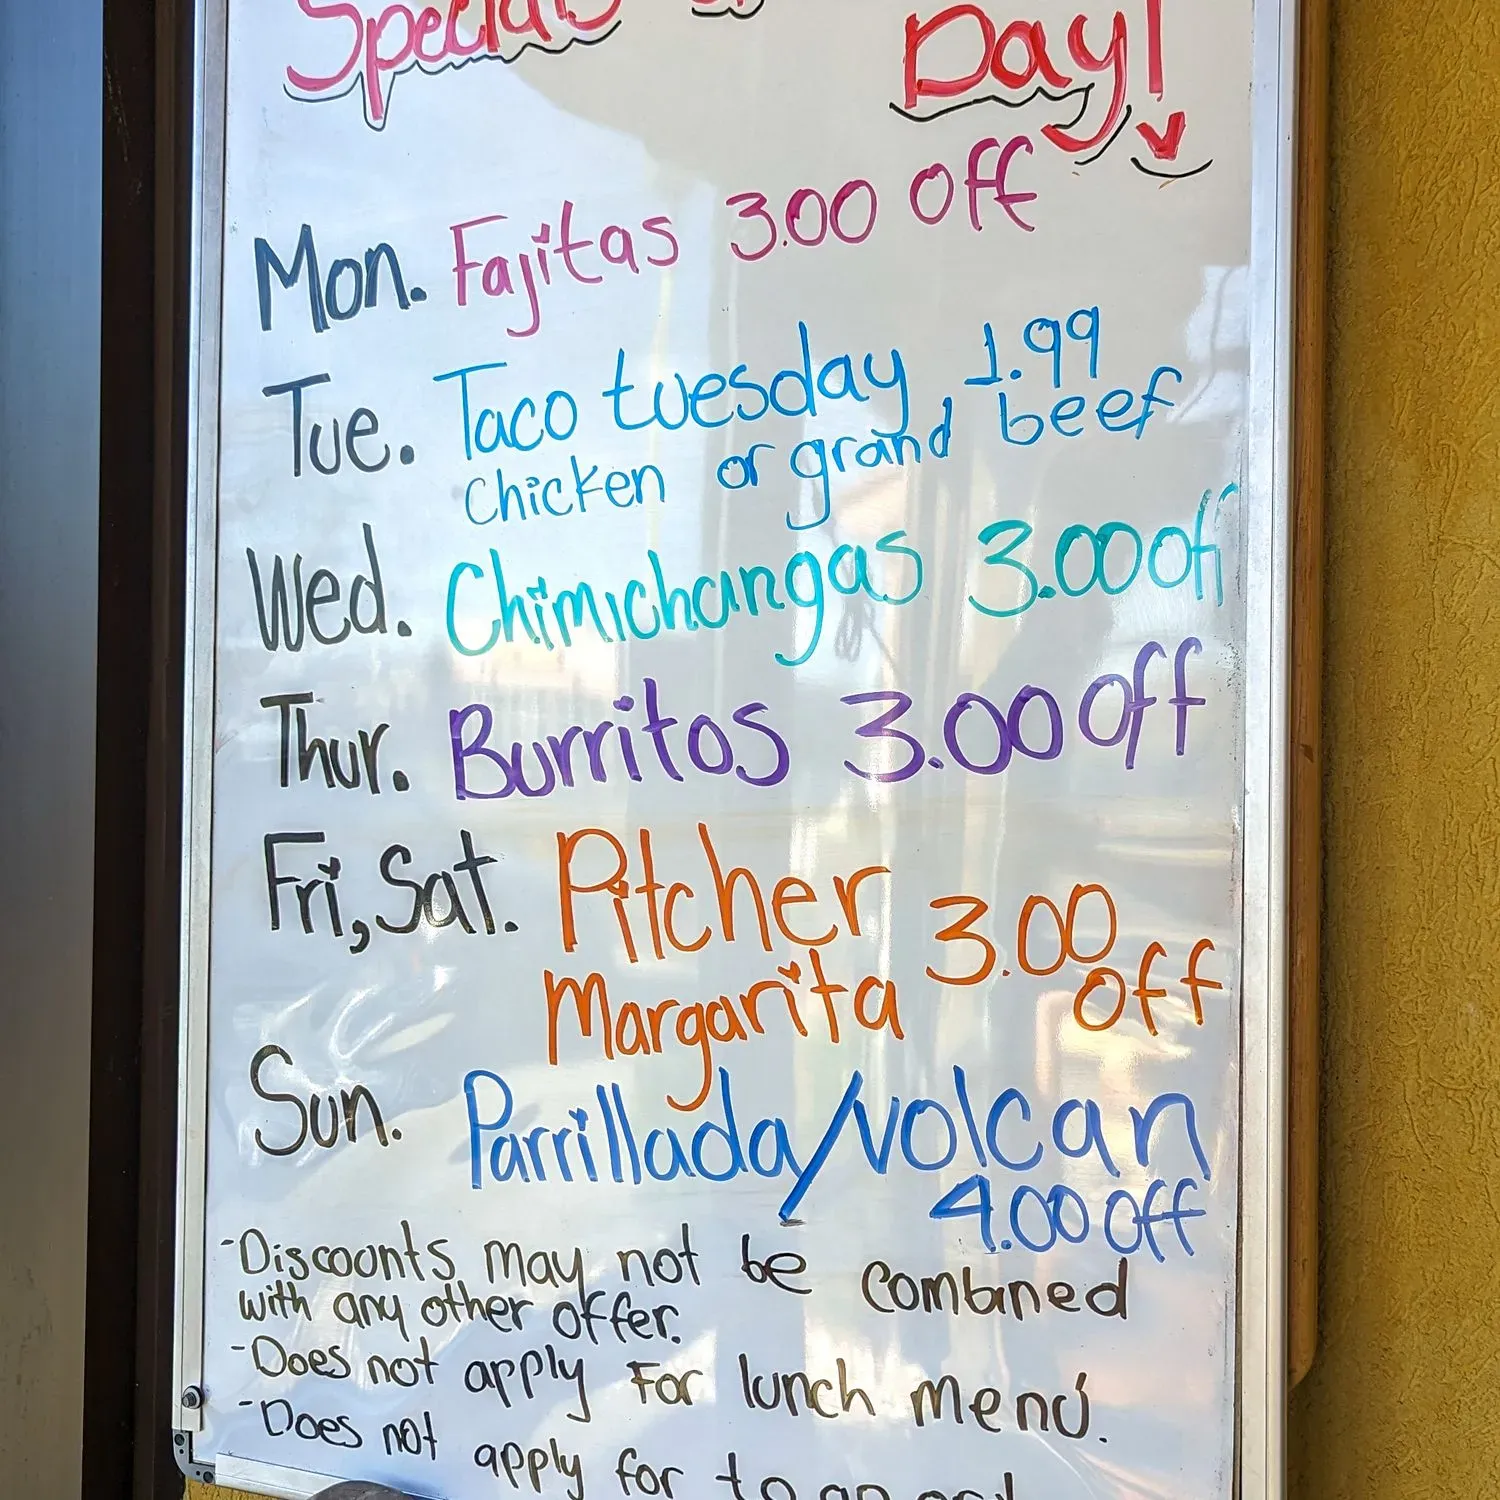 Special
Day!
Mon. Fajitas 3.00 off
Tue. Taco tuesday, 1.99
chicken or grand beef
Wed. Chimichangas 3.00 off
Thur. Burritos 3.00 off
Fri, Sat. Pitcher 3.00
Margarita off
Sun. Parrillada/volcan
4.00 off
-Discounts may not be combined
with any other offer.
-Does not apply For lunch menú.
-Does not apply for to